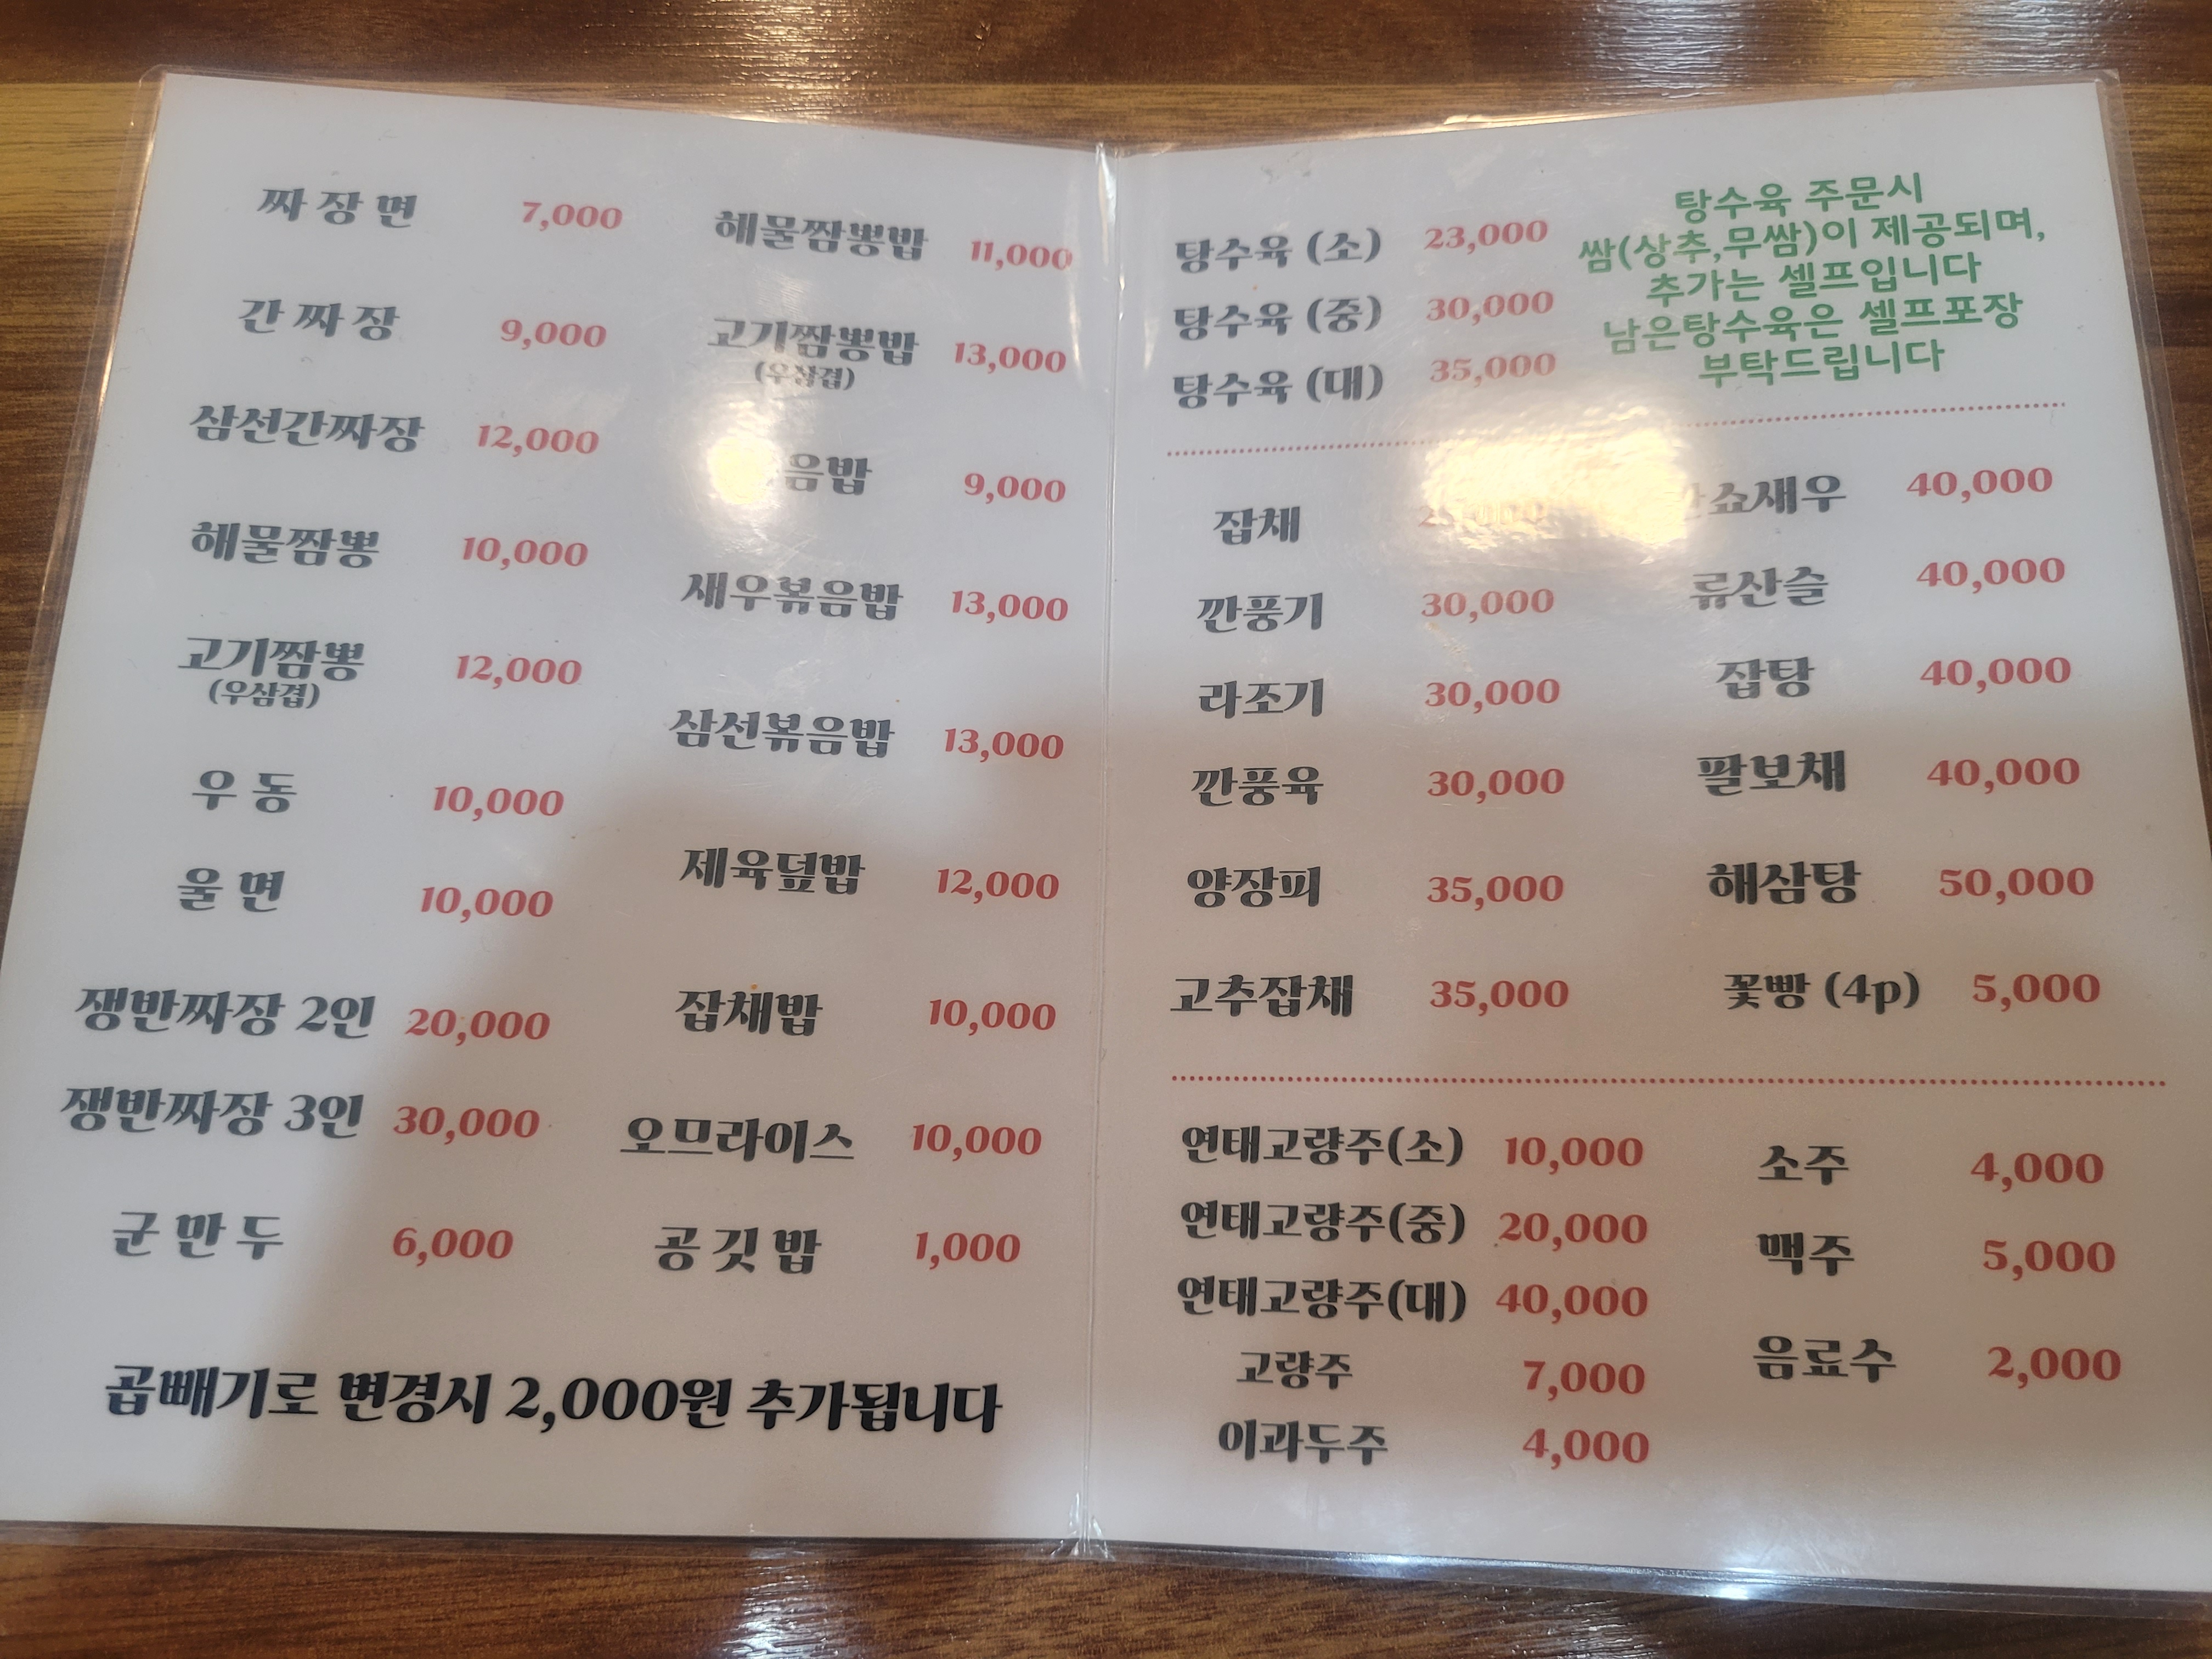 짜장면 7,000
간짜장 9,000
삼선간짜장 12,000
해물짬뽕 10,000
고기짬뽕 12,000
(우삼겹)
우동 10,000
울면 10,000
쟁반짜장 2인 20,000
쟁반짜장 3인 30,000
군만두 6,000
해물짬뽕밥 11,000
고기짬뽕밥 13,000
(우삼겹)
9,000
새우볶음밥 13,000
삼선볶음밥 13,000
제육덮밥 12,000
잡채밥 10,000
오므라이스 10,000
공깃밥 1,000
곱빼기로 변경시 2,000원 추가됩니다
탕수육 (소) 23,000
탕수육 (중) 30,000
탕수육 (대) 35,000
탕수육 주문시
쌈(상추,무쌈)이 제공되며,
추가는 셀프입니다
남은탕수육은 셀프포장
부탁드립니다
잡채
깐풍기 30,000
라조기 30,000
깐풍육 30,000
양장피 35,000
고추잡채 35,000
40,000
류산슬 40,000
잡탕 40,000
팔보채 40,000
해삼탕 50,000
꽃빵 (4p) 5,000
연태고량주(소) 10,000
연태고량주(중) 20,000
연태고량주(대) 40,000
고량주 7,000
이과두주 4,000
소주 4,000
맥주 5,000
음료수 2,000